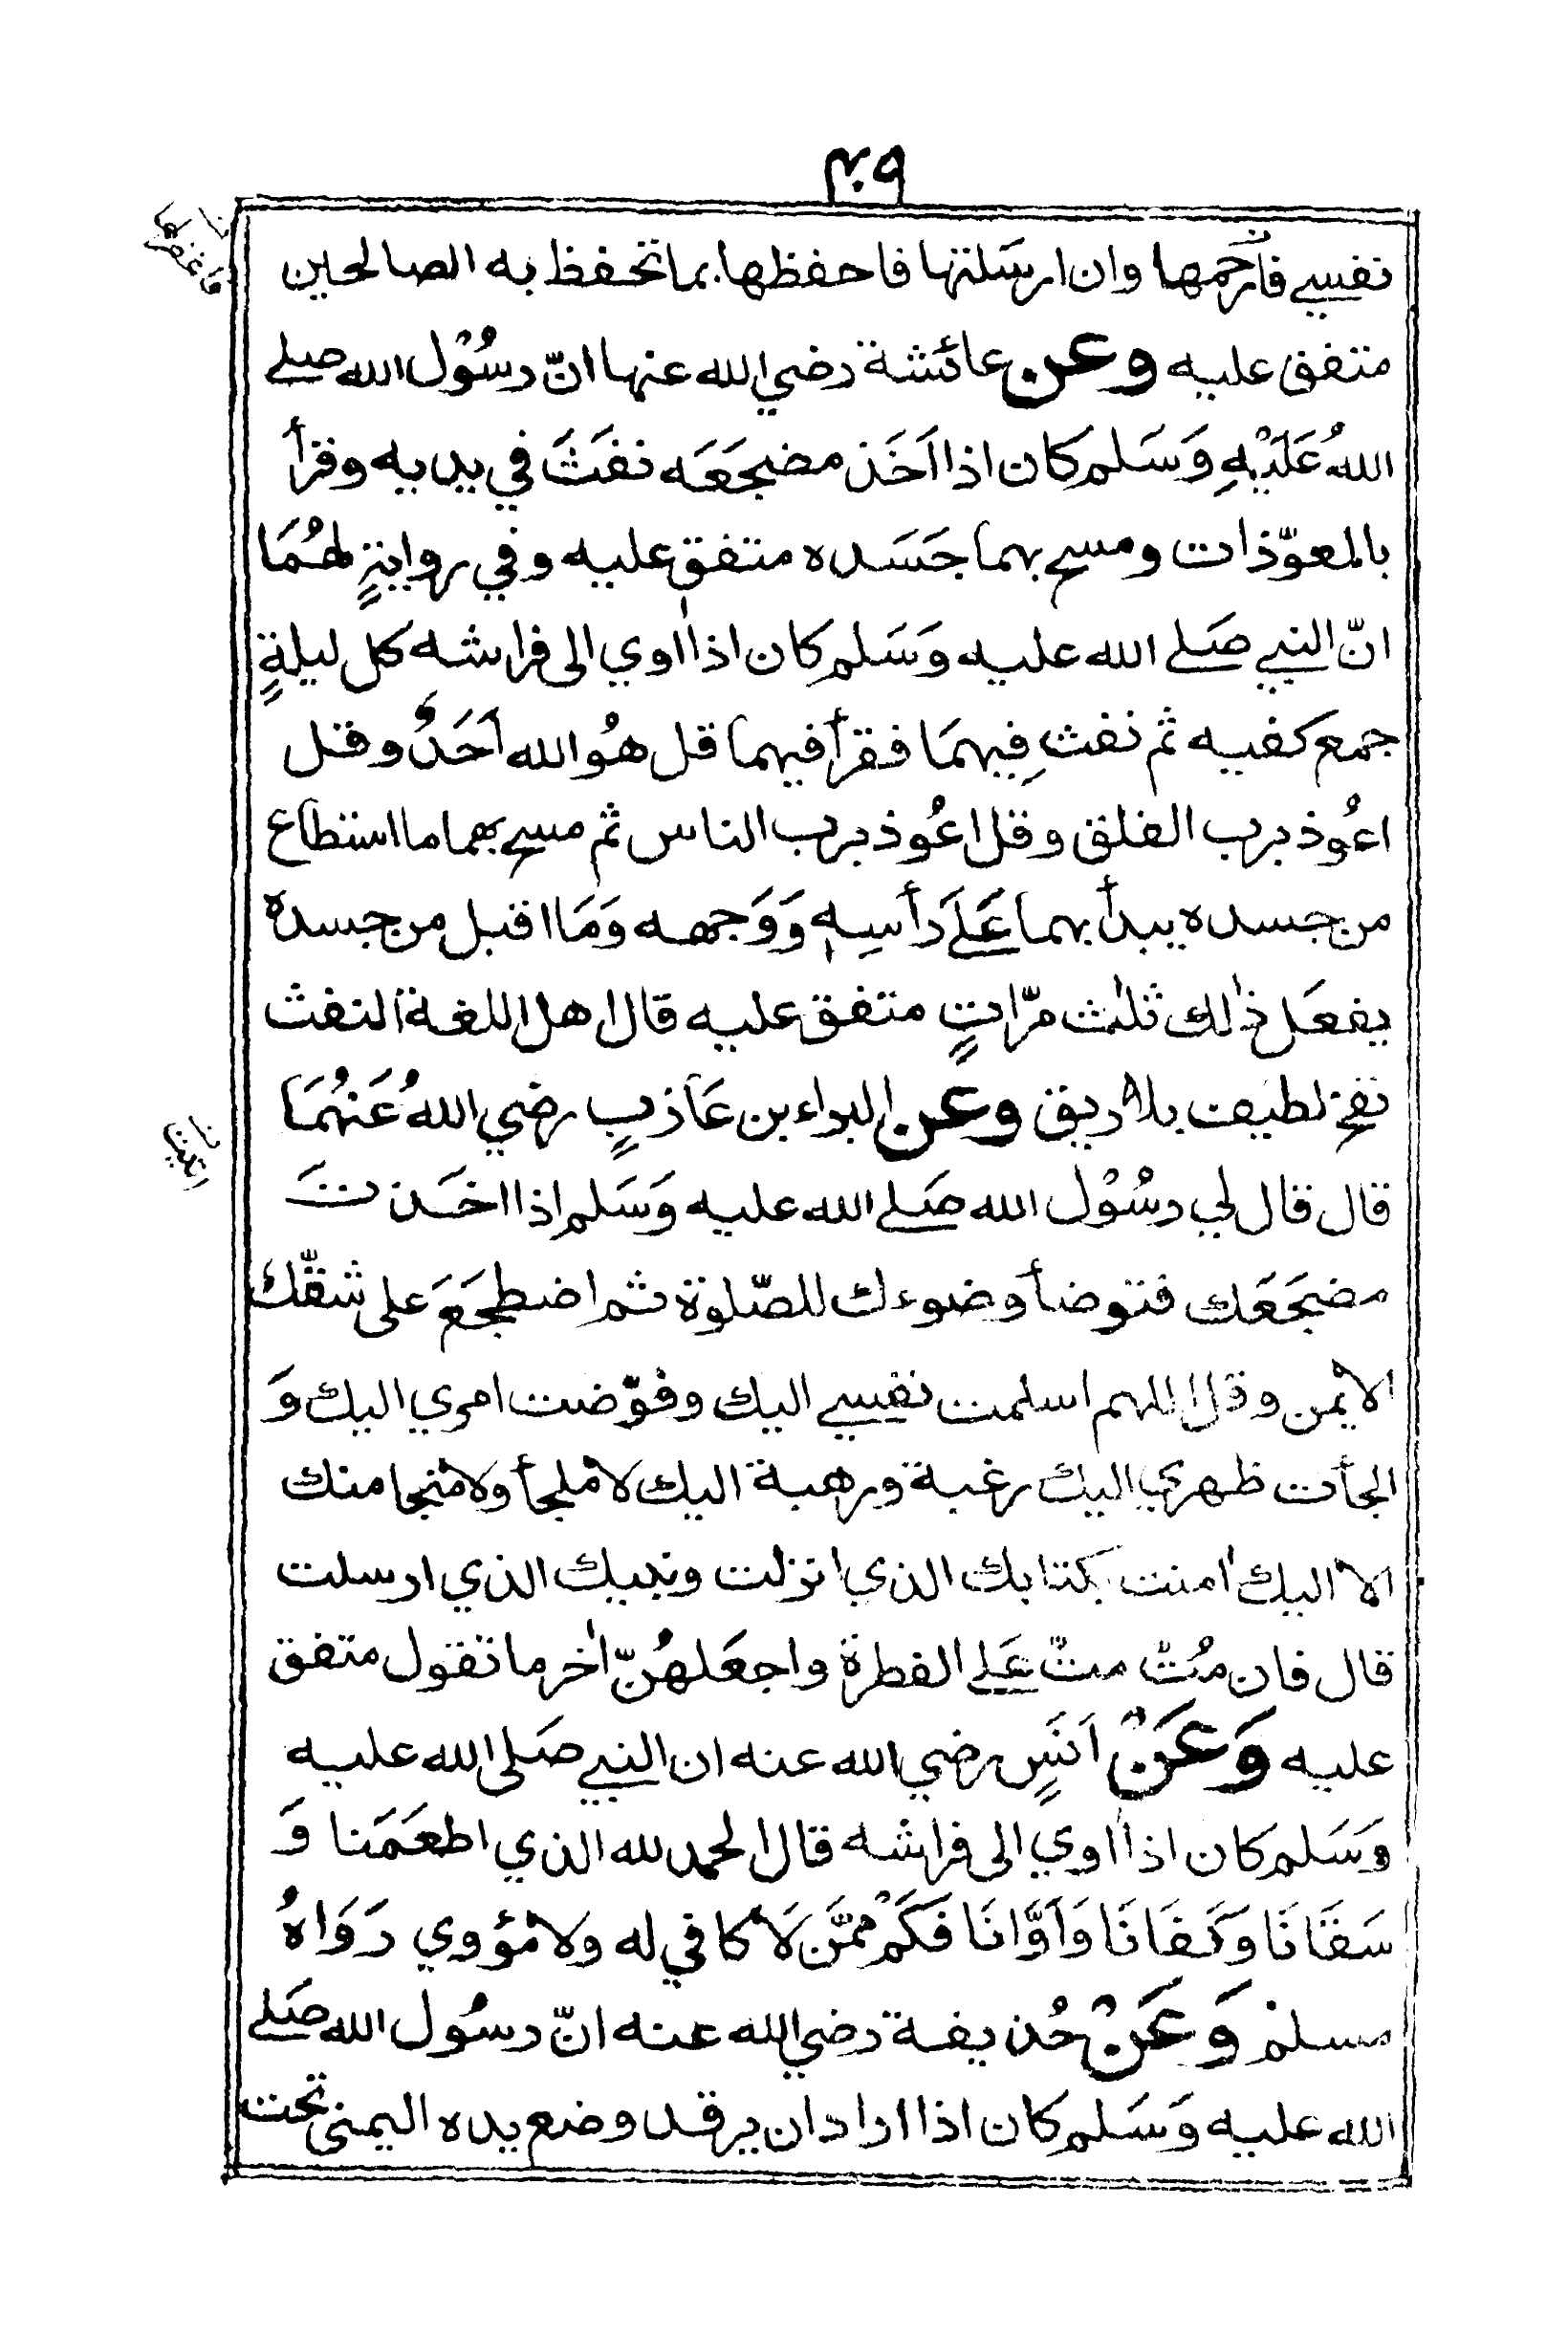 ٤٠٩
نفسي فارحمها وان ارسَلتها فاحفظها بما تحفظ به الصالحين
فاغفرلها
متفق عليه وعن عائشة رضي الله عنها انّ رسُوْل الله صلے
اللهُ عَلَيْهِ وَسَلم كان اذا اَخَذ مضجَعَه نفَثَ في يديه وقرأ
بالمعوّذات ومسح بهما جَسَده متفق عليه وفي روايةٍ لهُمَا
انّ النبي صَلے الله عليه وَسَلم كان اذا اٰوي الى فراشه كل ليلةٍ
جمع كفيه ثم نفث فِيهمَا فقرأ فيهما قل هُو الله اَحَدٌ وقل
اعُوذ برب الفلق وقل اعُوذ برب الناس ثم مسح بهما ما استطاع
من جسده يبدأ بهما عَلَے رأسِهٖ وَوَجهه وَمَا اقبل من جسده
يفعَل ذٰلك ثلٰث مرّاتٍ متفق عليه قال اهل اللغة النفث
نفخ لطيف بلا ريق وعن البراء بن عَازبٍ رضي اللهُ عَنهُمَا
قال قال لي رسُوْل الله صَلے الله عليه وَسَلم اذا اخَذتَ
مضجَعَك فتوضأ وضوءك للصّلوة ثم اضطجَعَ على شقّك
الايمن وقل اللهم اسلمت نفسي اليك وفوّضت امري اليك وَ
الجأت ظهري اليك رغبة ورهبة اليك لا ملجأ ولا منجا منك
الا اليك اٰمنت بكتابك الذي انزلت ونبيك الذي ارسلت
قال فان مُتّ متّ عَلے الفطرة واجعَلهُنّ اٰخر ما تقول متفق
عليه وَعَنْ اَنَسٍ رضي الله عنه ان النبي صَلى الله عليه
وَسَلم كان اذا اٰوي الى فراشه قال الحمد لله الذي اطعَمَنا وَ
سَقَانَا وَكَفَانَا وَاٰوَّانَا فَكَمْ مِمَّن لَا كافي له ولا مؤوي رَوَاهُ
مسلمْ وَعَنْ حُذيفة رضي الله عنه انّ رسُول الله صَلے
الله عليه وَسَلم كان اذا اراد ان يرقد وضع يده اليمنى تحت